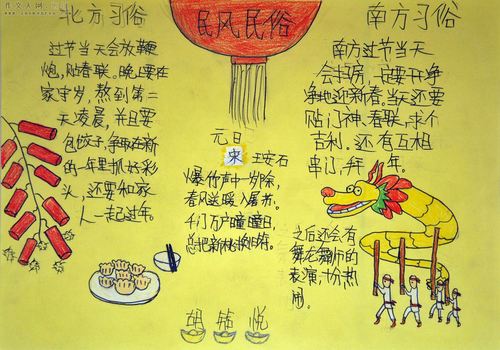 北方习俗
过节当天会放鞭
炮,贴春联。晚上要在
家守岁,熬到第二
天凌晨,并且要
包饺子,争取在新
的一年里抓好彩
头,还要和家
人一起过年。
民风民俗
元日
宋 王安石
爆竹声中一岁除,
春风送暖入屠苏。
千门万户曈曈日,
总把新桃换旧符。
南方习俗
南方过节当天
会扫房,定要干净
净地迎新春。当天还要
贴门神、春联,求个
吉利。还有互相
串门,拜年。
之后还会有
舞龙舞狮的
表演,十分热
闹。